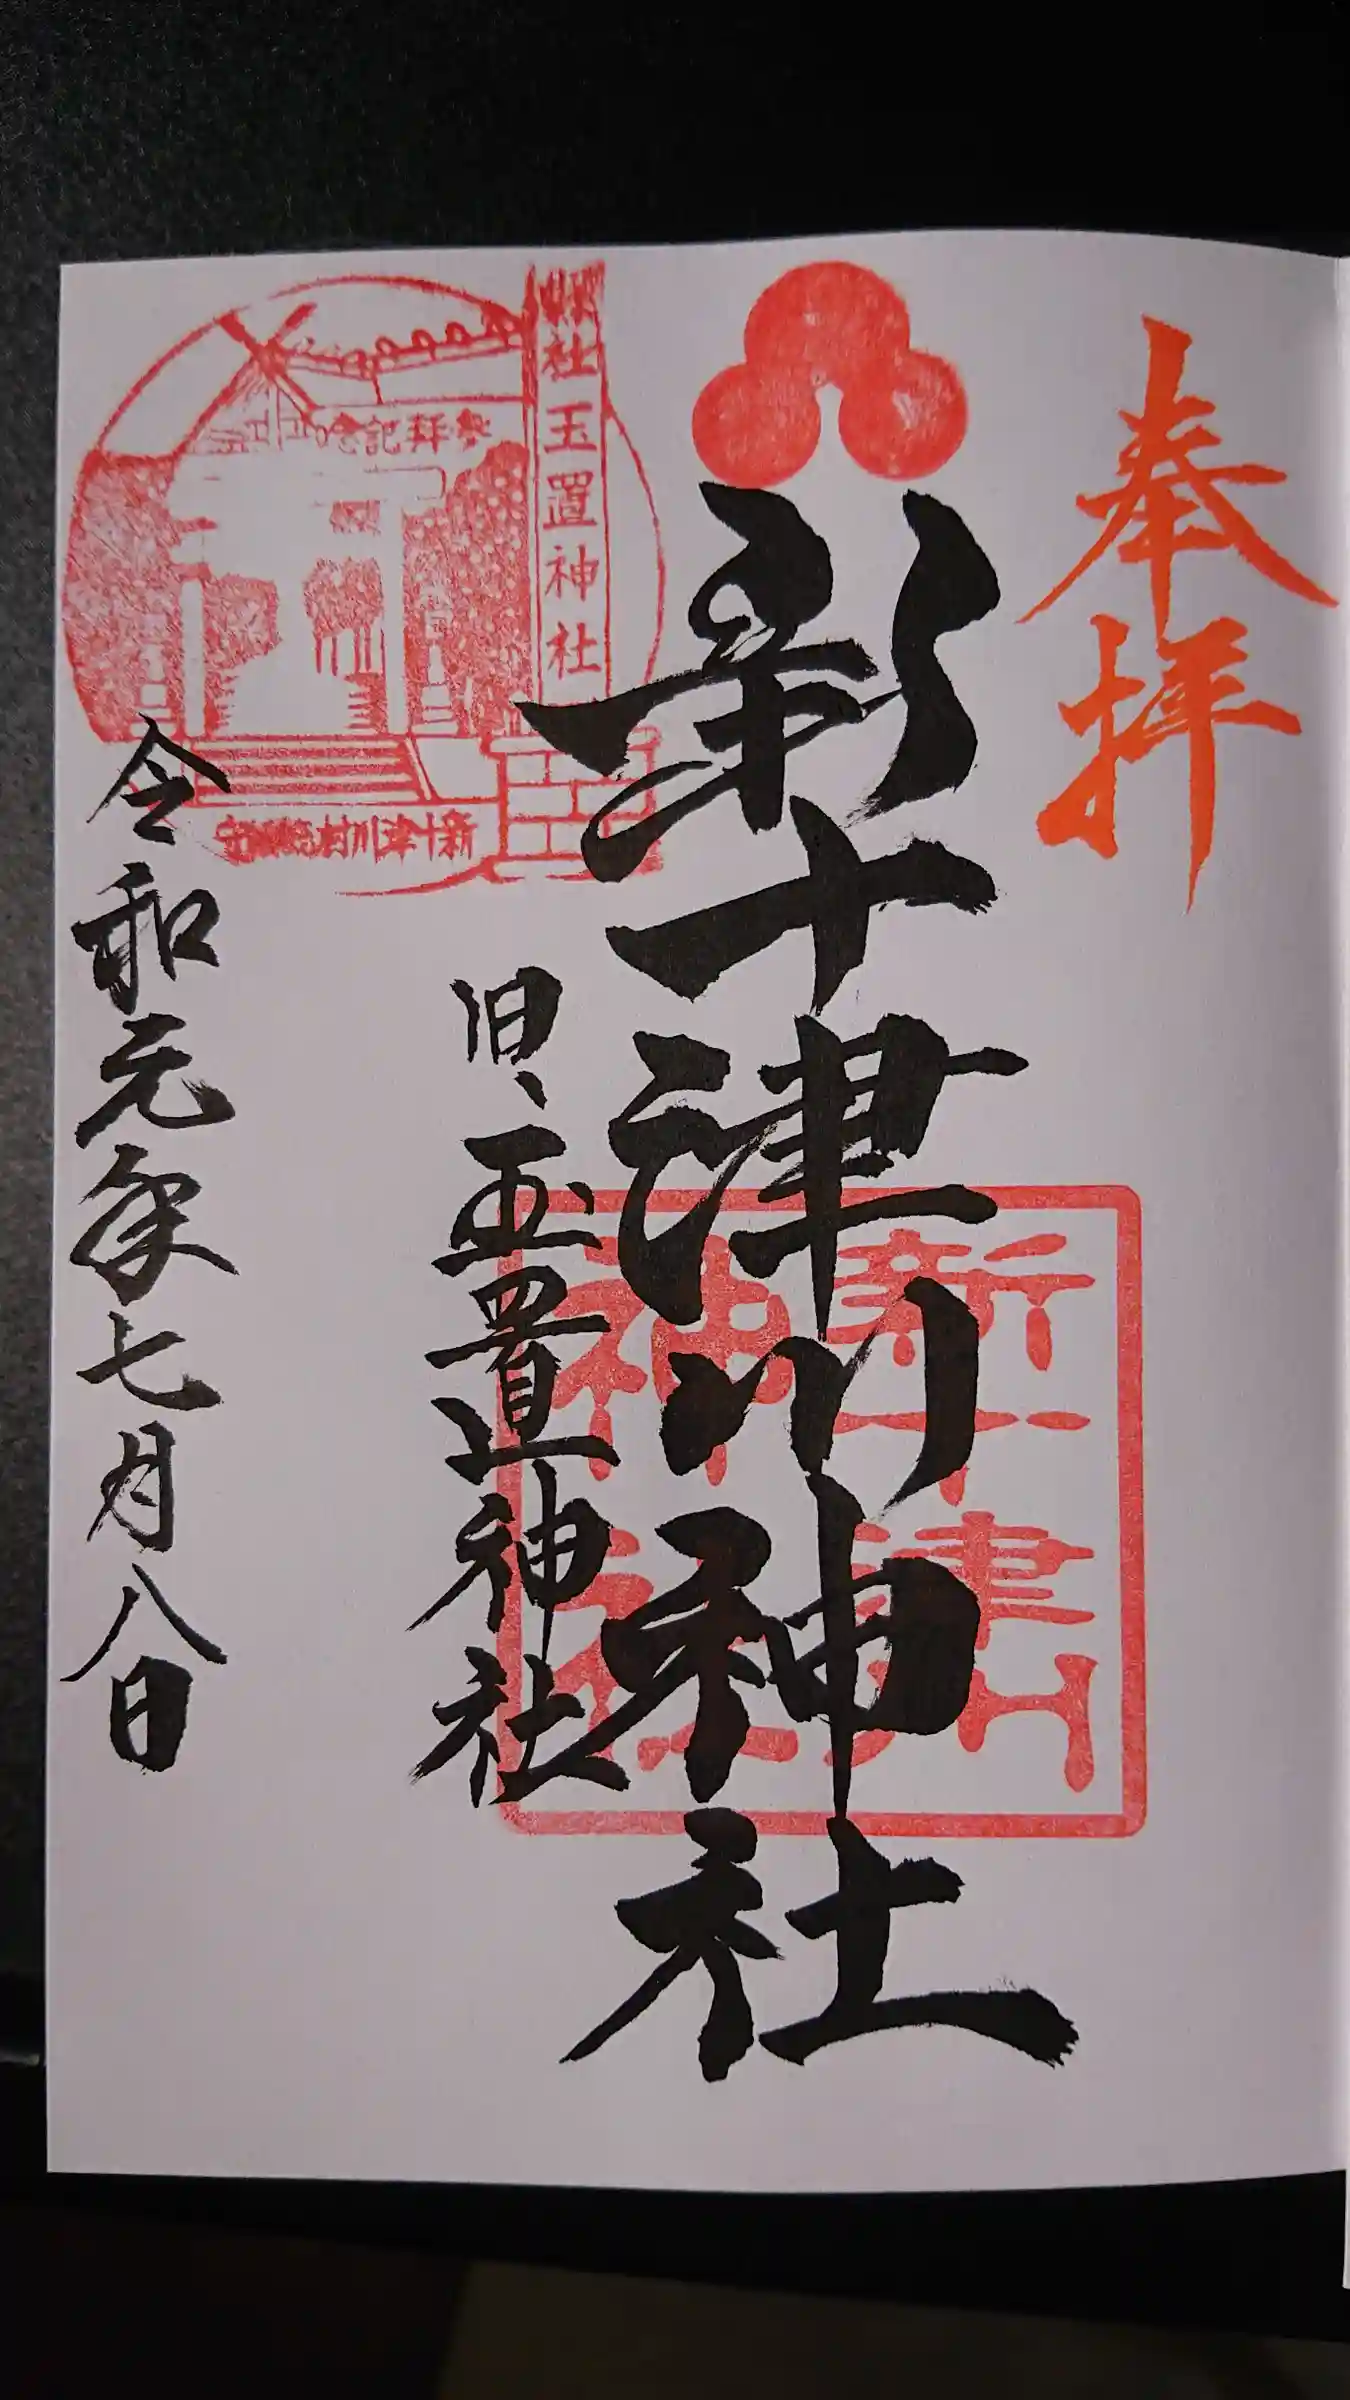 奉拝
新十津川神社
旧、玉置神社
令和元年七月八日
新十津川
神社
県社 玉置神社
参拝記念
新十津川村